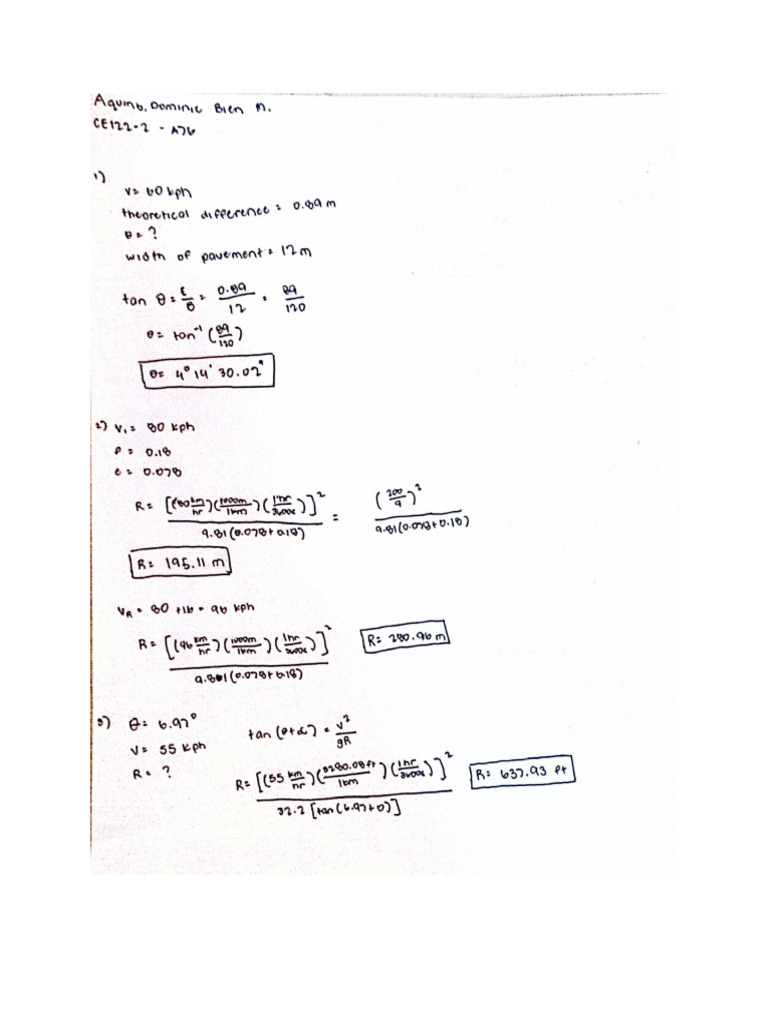 Aquino, Dominic Bien M.
CE122-2 - A76
1)
V= 60 kph
theoretical difference = 0.89 m
θ = ?
width of pavement = 12 m
tan θ = ε/B = 0.89/12 = 89/120
θ = tan⁻¹ (89/120)
θ= 4° 14' 30.02"
2) V₁ = 80 kph
f = 0.18
e = 0.078
R = [(80 km/hr)(1000m/1km)(1hr/3600s)]² / 9.81(0.078+0.18) = (200/9)² / 9.81(0.078+0.18)
R= 195.11 m
V_R = 80 +16 = 96 kph
R = [(96 km/hr)(1000m/1km)(1hr/3600s)]² / 9.81(0.078+0.18) R= 280.96 m
3) θ = 6.97° tan(θ+α) = V²/gR
V = 55 kph
R = ? R = [(55 km/hr)(3280.08ft/1km)(1hr/3600s)]² / 32.2 [tan(6.97+0)] R= 637.93 ft